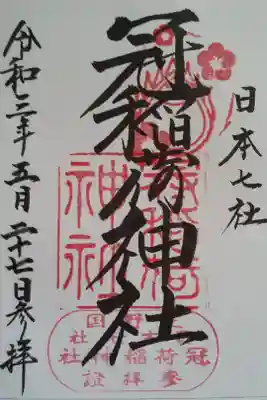 日本七社
冠稲荷神社
令和二年五月二十七日参拝
稲荷
神社
冠荷稲神社
參拝證